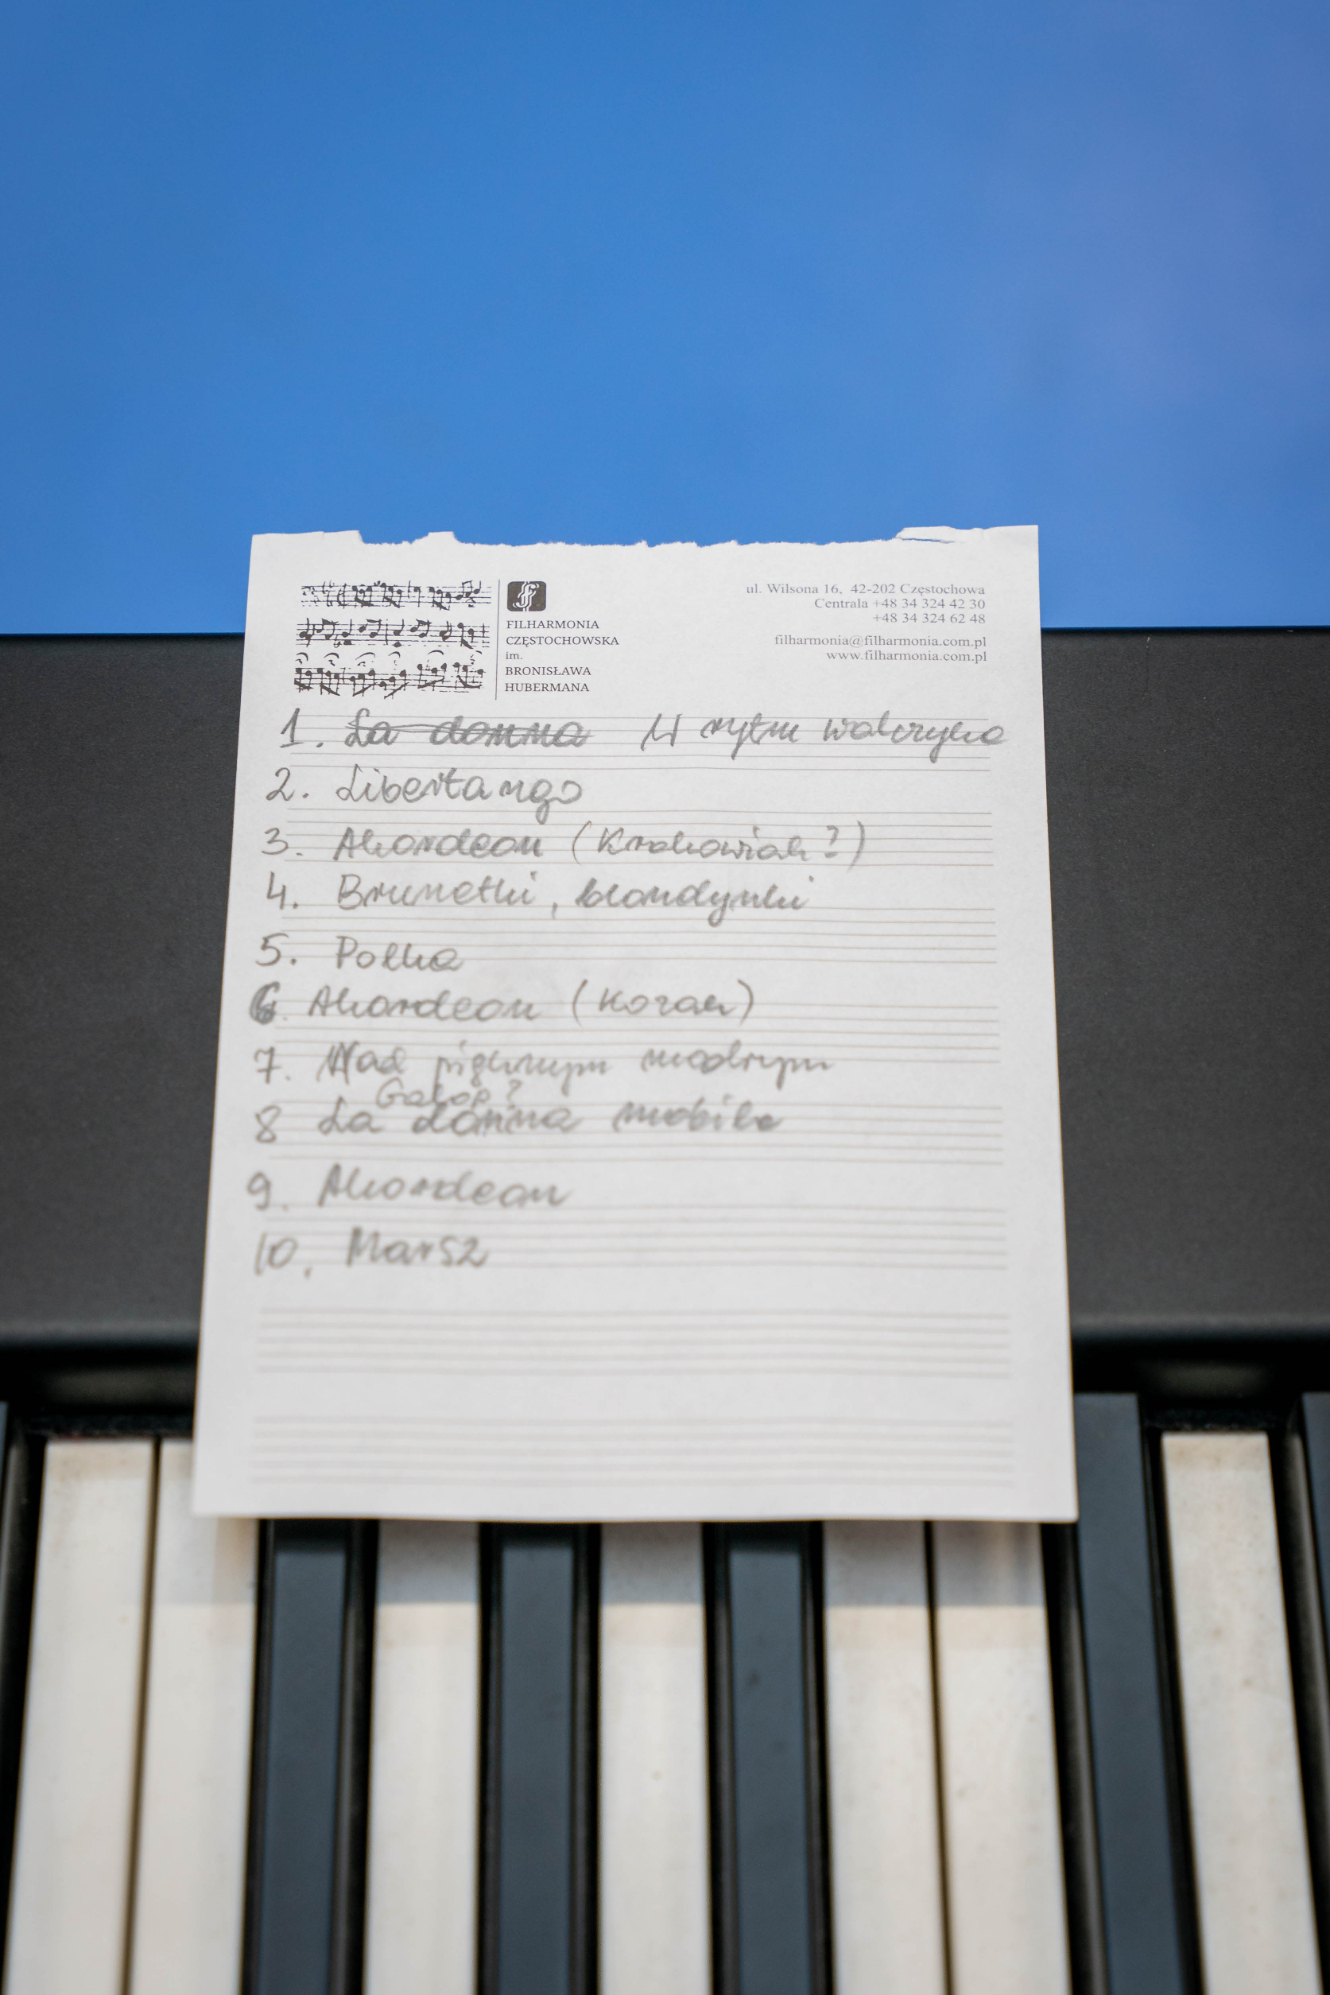 FILHARMONIA
CZĘSTOCHOWSKA
im.
BRONISŁAWA
HUBERMANA
ul. Wilsona 16, 42-202 Częstochowa
Centrala +48 34 324 42 30
+48 34 324 62 48
filharmonia@filharmonia.com.pl
www.filharmonia.com.pl
1. La donna W rytm walczyka
2. Libertango
3. Akordeon (Krakowiak?)
4. Brunetki, blondynki
5. Polka
6. Akordeon (Kozak)
7. Nad pięknym modrym
Galop?
8 La donna mobile
9. Akordeon
10. Marsz